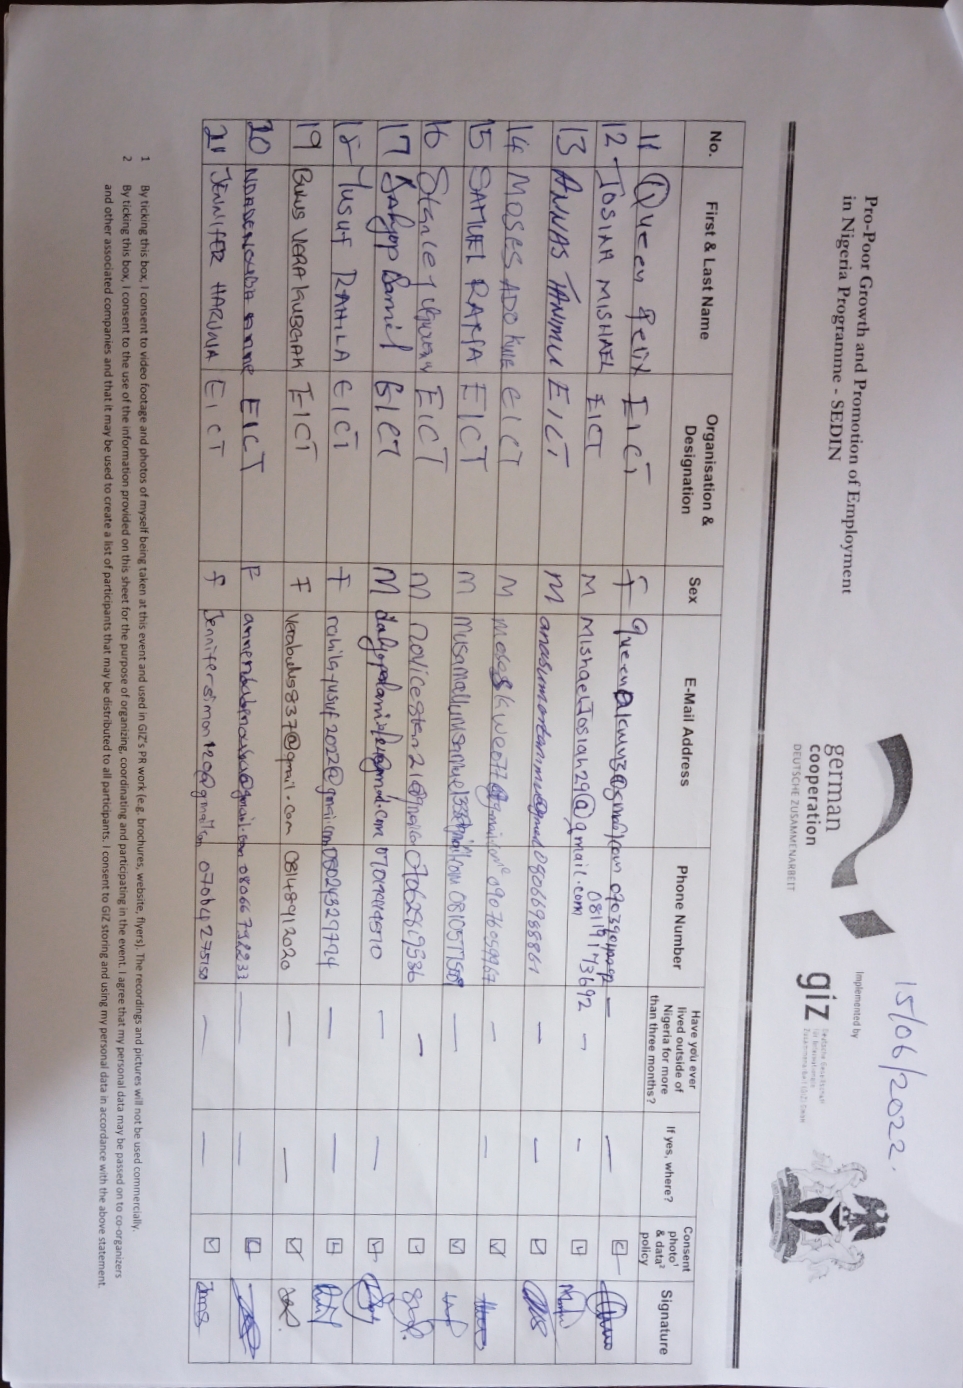 15/06/2022.
Pro-Poor Growth and Promotion of Employment
in Nigeria Programme - SEDIN
german
cooperation
DEUTSCHE ZUSAMMENARBEIT
Implemented by
giz Deutsche Gesellschaft
für Internationale
Zusammenarbeit (GIZ) GmbH
No. First & Last Name Organisation & Designation Sex E-Mail Address Phone Number Have you ever lived outside of Nigeria for more than three months? If yes, where? Consent photo¹ & data² policy Signature
11 Queen Felix EICT F
12 JOSIAH MISHAEL EICT M MishaelJosiah29@gmail.com 08119173692 — —
13 ANNAS TANIMU EICT M 08066988861 — —
14 MOSES ADO KWE EICT M 09076059967 — —
15 SAMUEL RAMA EICT M
16 Stanley EICT M 07062819536 —
17 Dalyop Daniel EICT M — —
18 Yusuf RAHILA EICT F 08024329774 — —
19 BULUS VERA KUBGAK EICT F Verabulus837@gmail.com 08148912020 — —
20 EICT F 08066792233 — —
21 JENNIFER HARUNA EICT F 07064275150 — —
1 By ticking this box, I consent to video footage and photos of myself being taken at this event and used in GIZ's PR work (e.g. brochures, website, flyers). The recordings and pictures will not be used commercially.
2 By ticking this box, I consent to the use of the information provided on this sheet for the purpose of organizing, coordinating and participating in the event. I agree that my personal data may be passed on to co-organizers
and other associated companies and that it may be used to create a list of participants that may be distributed to all participants. I consent to GIZ storing and using my personal data in accordance with the above statement.